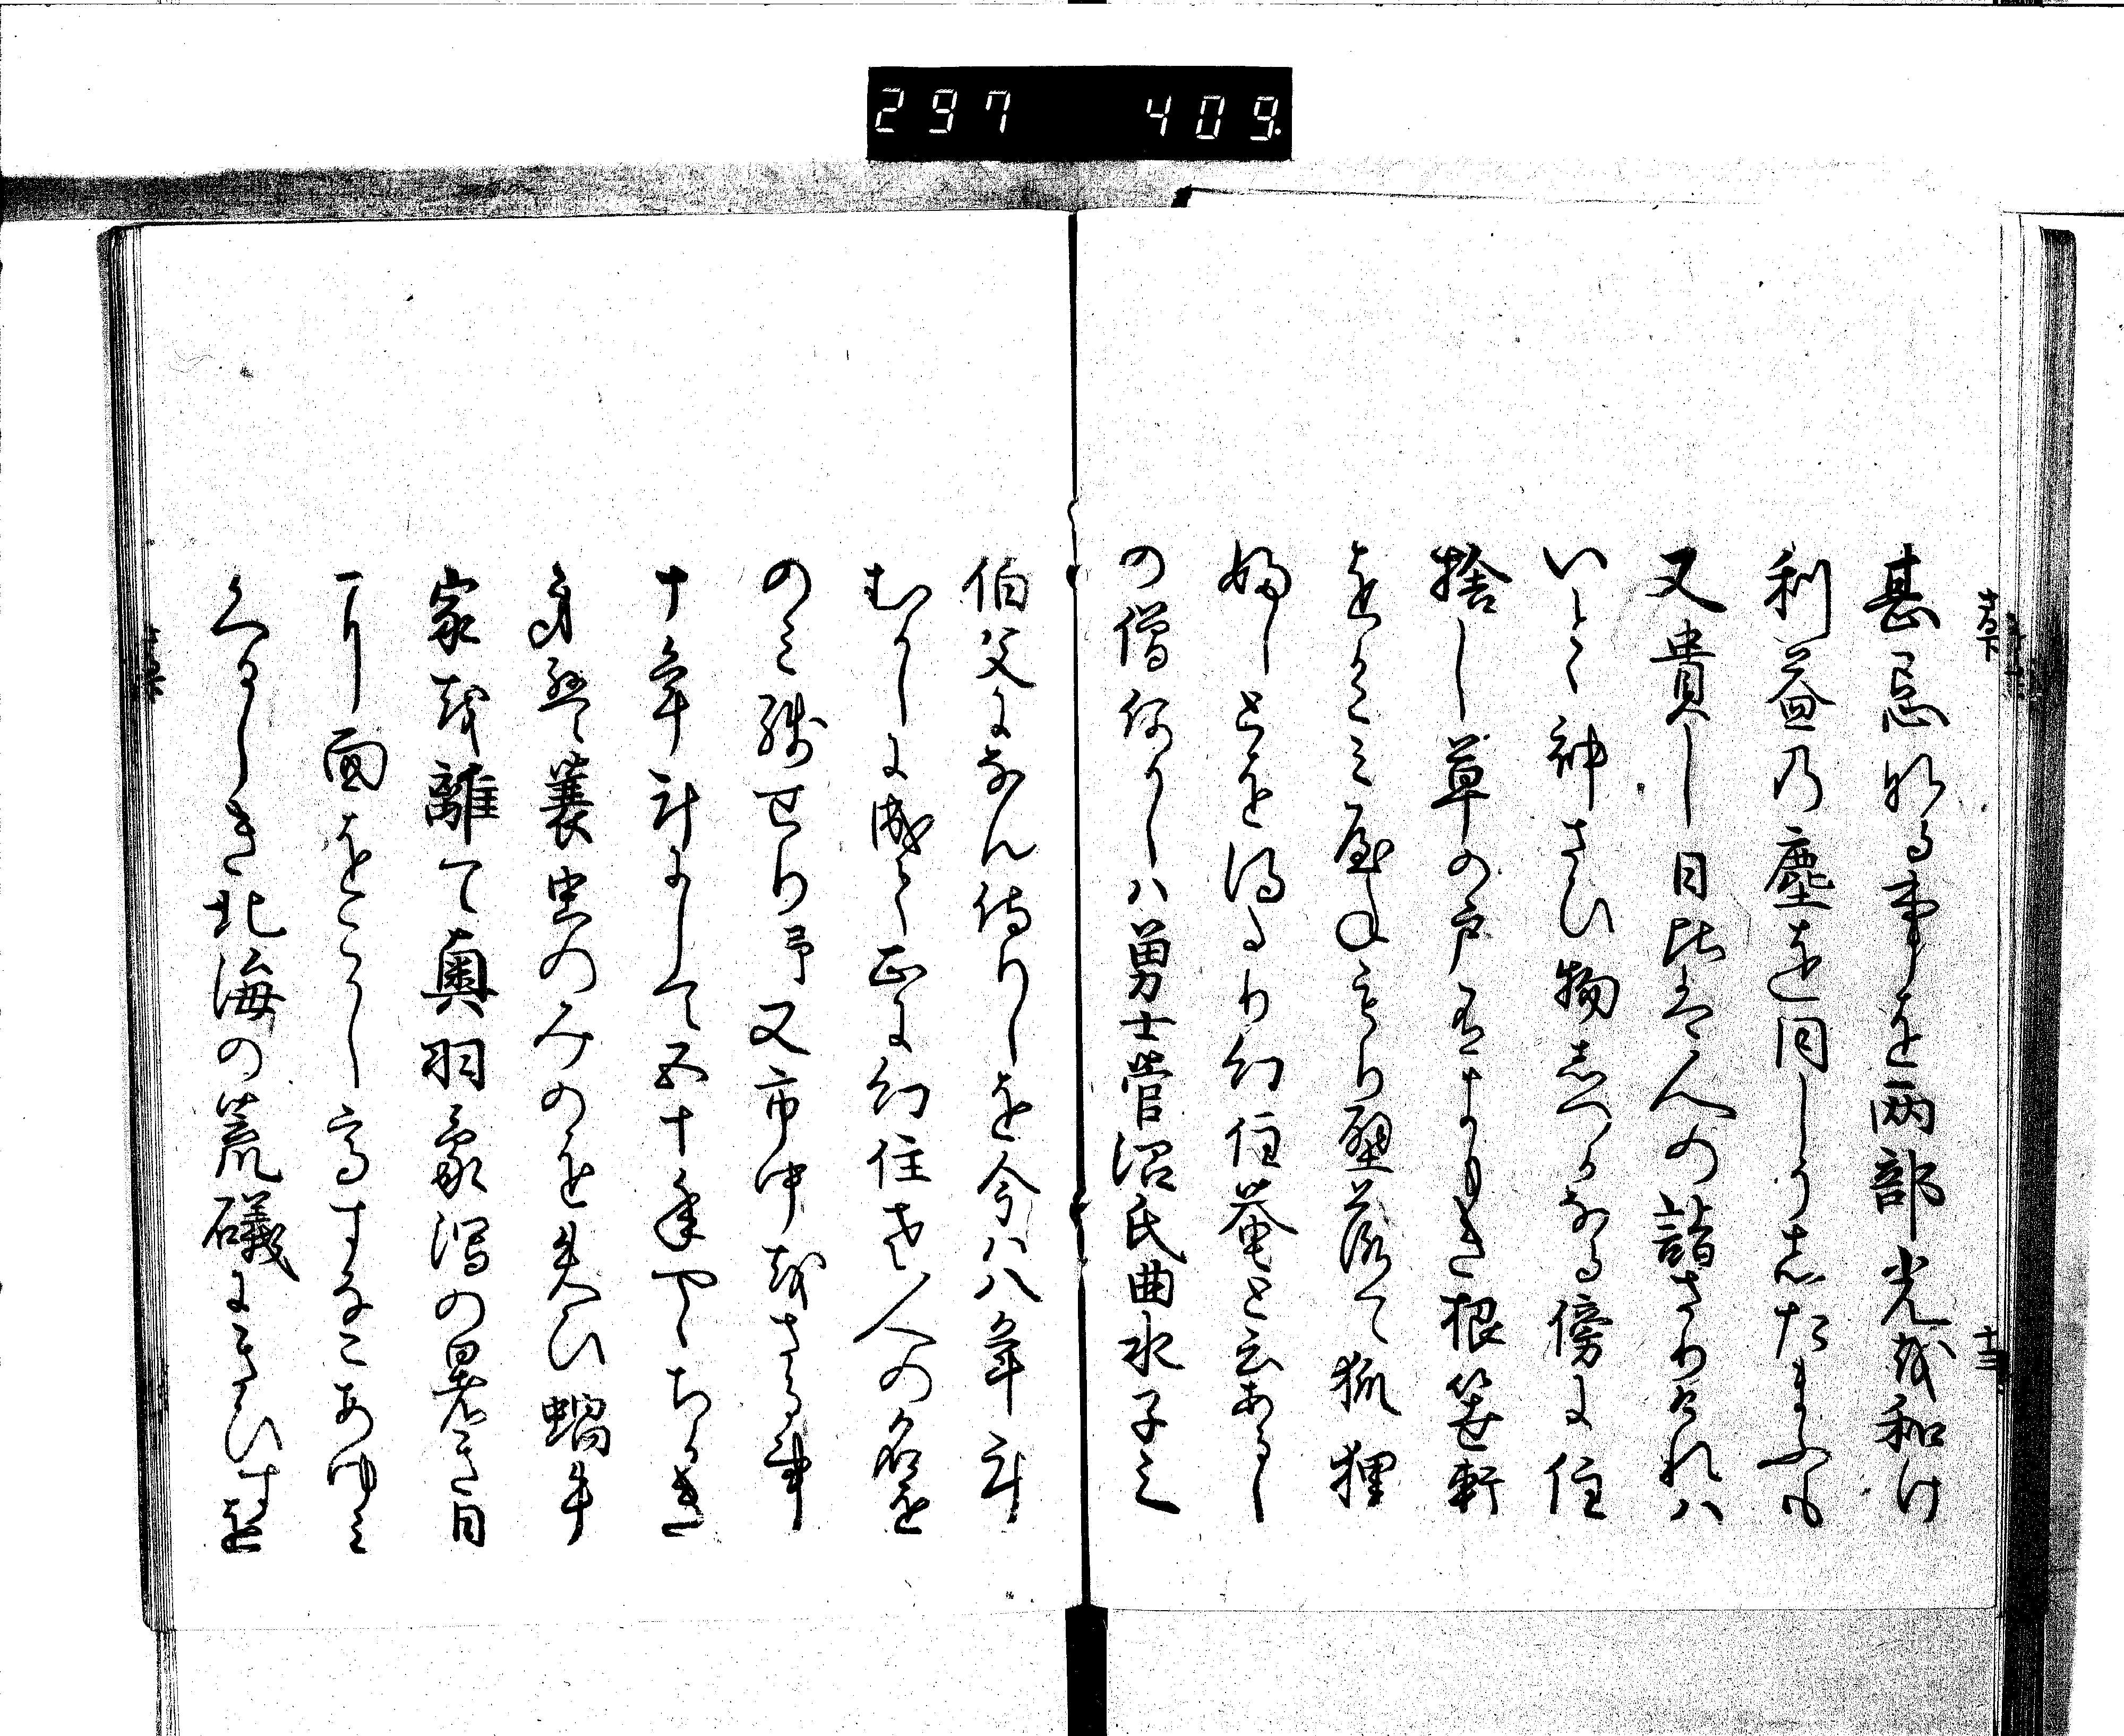 297 409.
甚忌なる事を両部光を和け
利益の塵を同しうしたまふも
又貴し日比は人の詣さりけれハ
いとゝ神さひ物しつかなる傍に住
捨し草の戸有よもき根笹軒
をかこミ屋ねもり壁落て狐狸
婦しとを得たり幻住菴と云あるし
の僧何かしハ勇士菅沼氏曲水子之
伯父になん侍りしを今ハ八年計
むかしに成て正に幻住老人の名を
のミ残せり予又市中をさる事
十年計にして五十年やゝちかき
身は蓑虫のみのを失ひ蝸牛
家を離て奥羽象潟の暑き日に
面をこかし高すなこあゆミ
くるしき北海の荒礒にきひすを